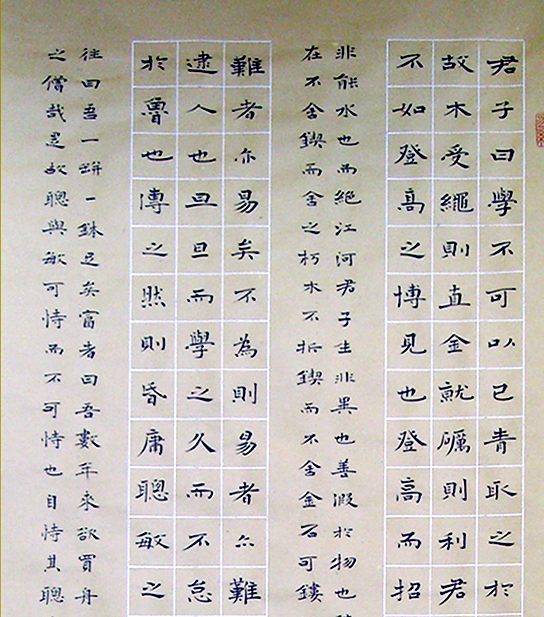 君子曰學不可以已青取之於
故木受繩則直金就礪則利君
不如登高之博見也登高而招
非能水也而絕江河君子生非異也善假於物也
在不舍鍥而舍之朽木不折鍥而不舍金石可鏤
難者亦易矣不為則易者亦難
逮人也旦旦而學之久而不怠
於魯也傳之然則昏庸聰敏之
往曰吾一缾一鉢足矣富者曰吾數年來欲買舟
之僧哉是故聰與敏可恃而不可恃也自恃其聰